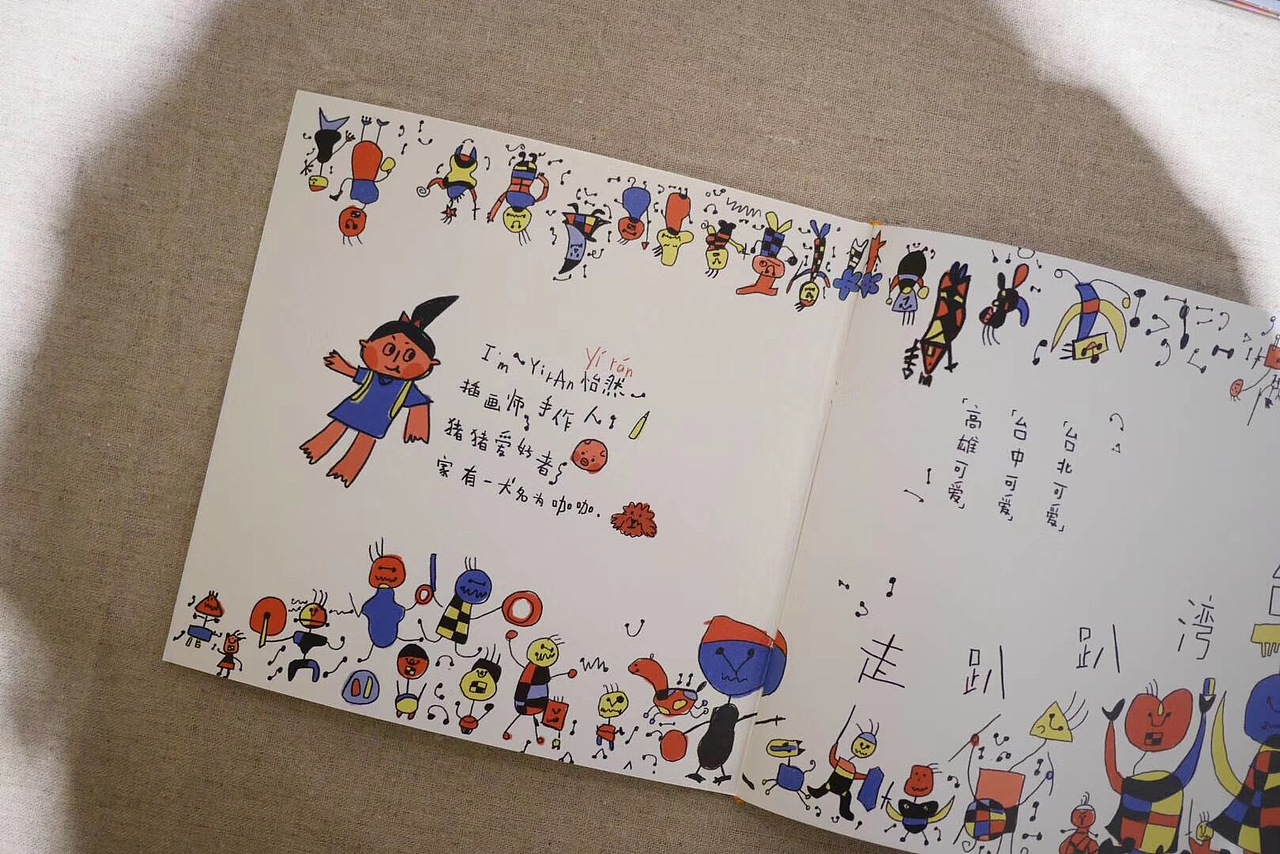 Yí rán
I'm YirAn 怡然
插画师,手作人,
猪猪爱好者,
家有一犬名为咖咖.
「台北可爱」
「台中可爱」
「高雄可爱」
走趴趴湾